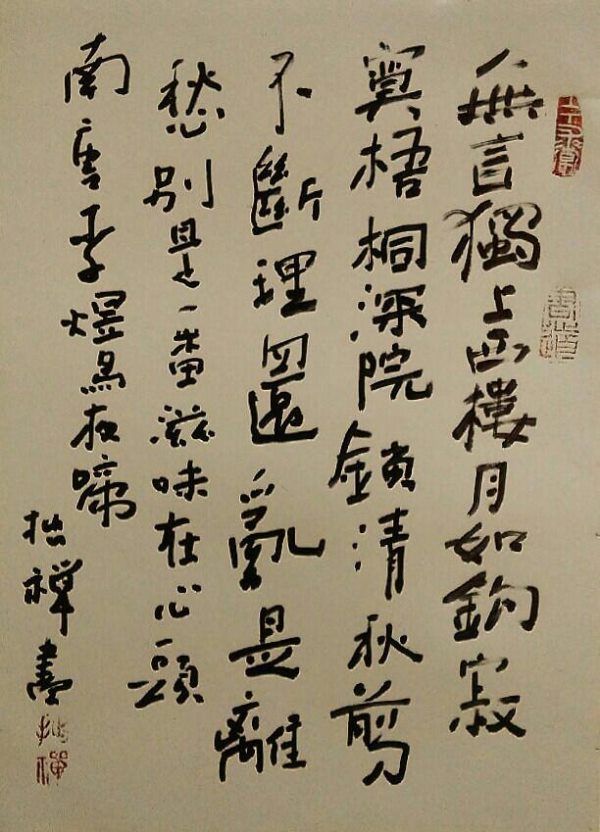 無言獨上西樓月如鈎寂
寞梧桐深院鎖清秋剪
不斷理還亂是離
愁別是一番滋味在心頭
南唐李煜烏夜啼
拙禪書
拙禪